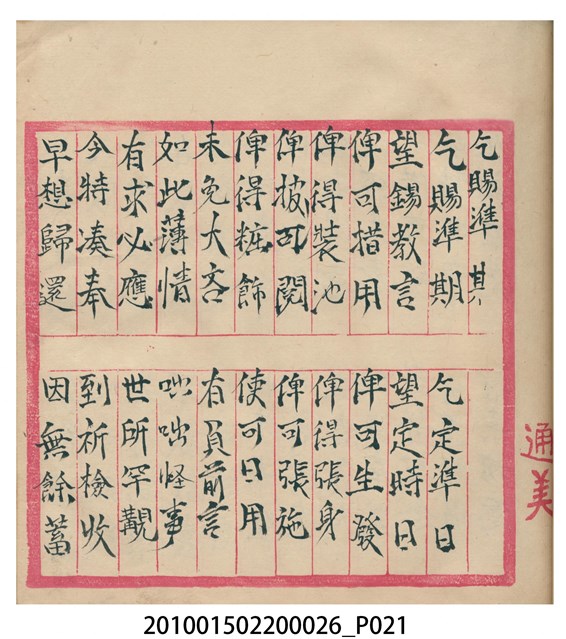 乞賜準其
乞賜準期
望錫教言
俾可措用
俾得裝池
俾披可閱
俾得粧飾
未免大吝
如此薄情
有求必應
今特凑奉
早想歸還
乞定準日
望定時日
俾可生發
俾得張身
俾可張施
使可日用
有負前言
咄咄怪事
世所罕覯
到祈檢收
因無餘蓄
通美
201001502200026_P021